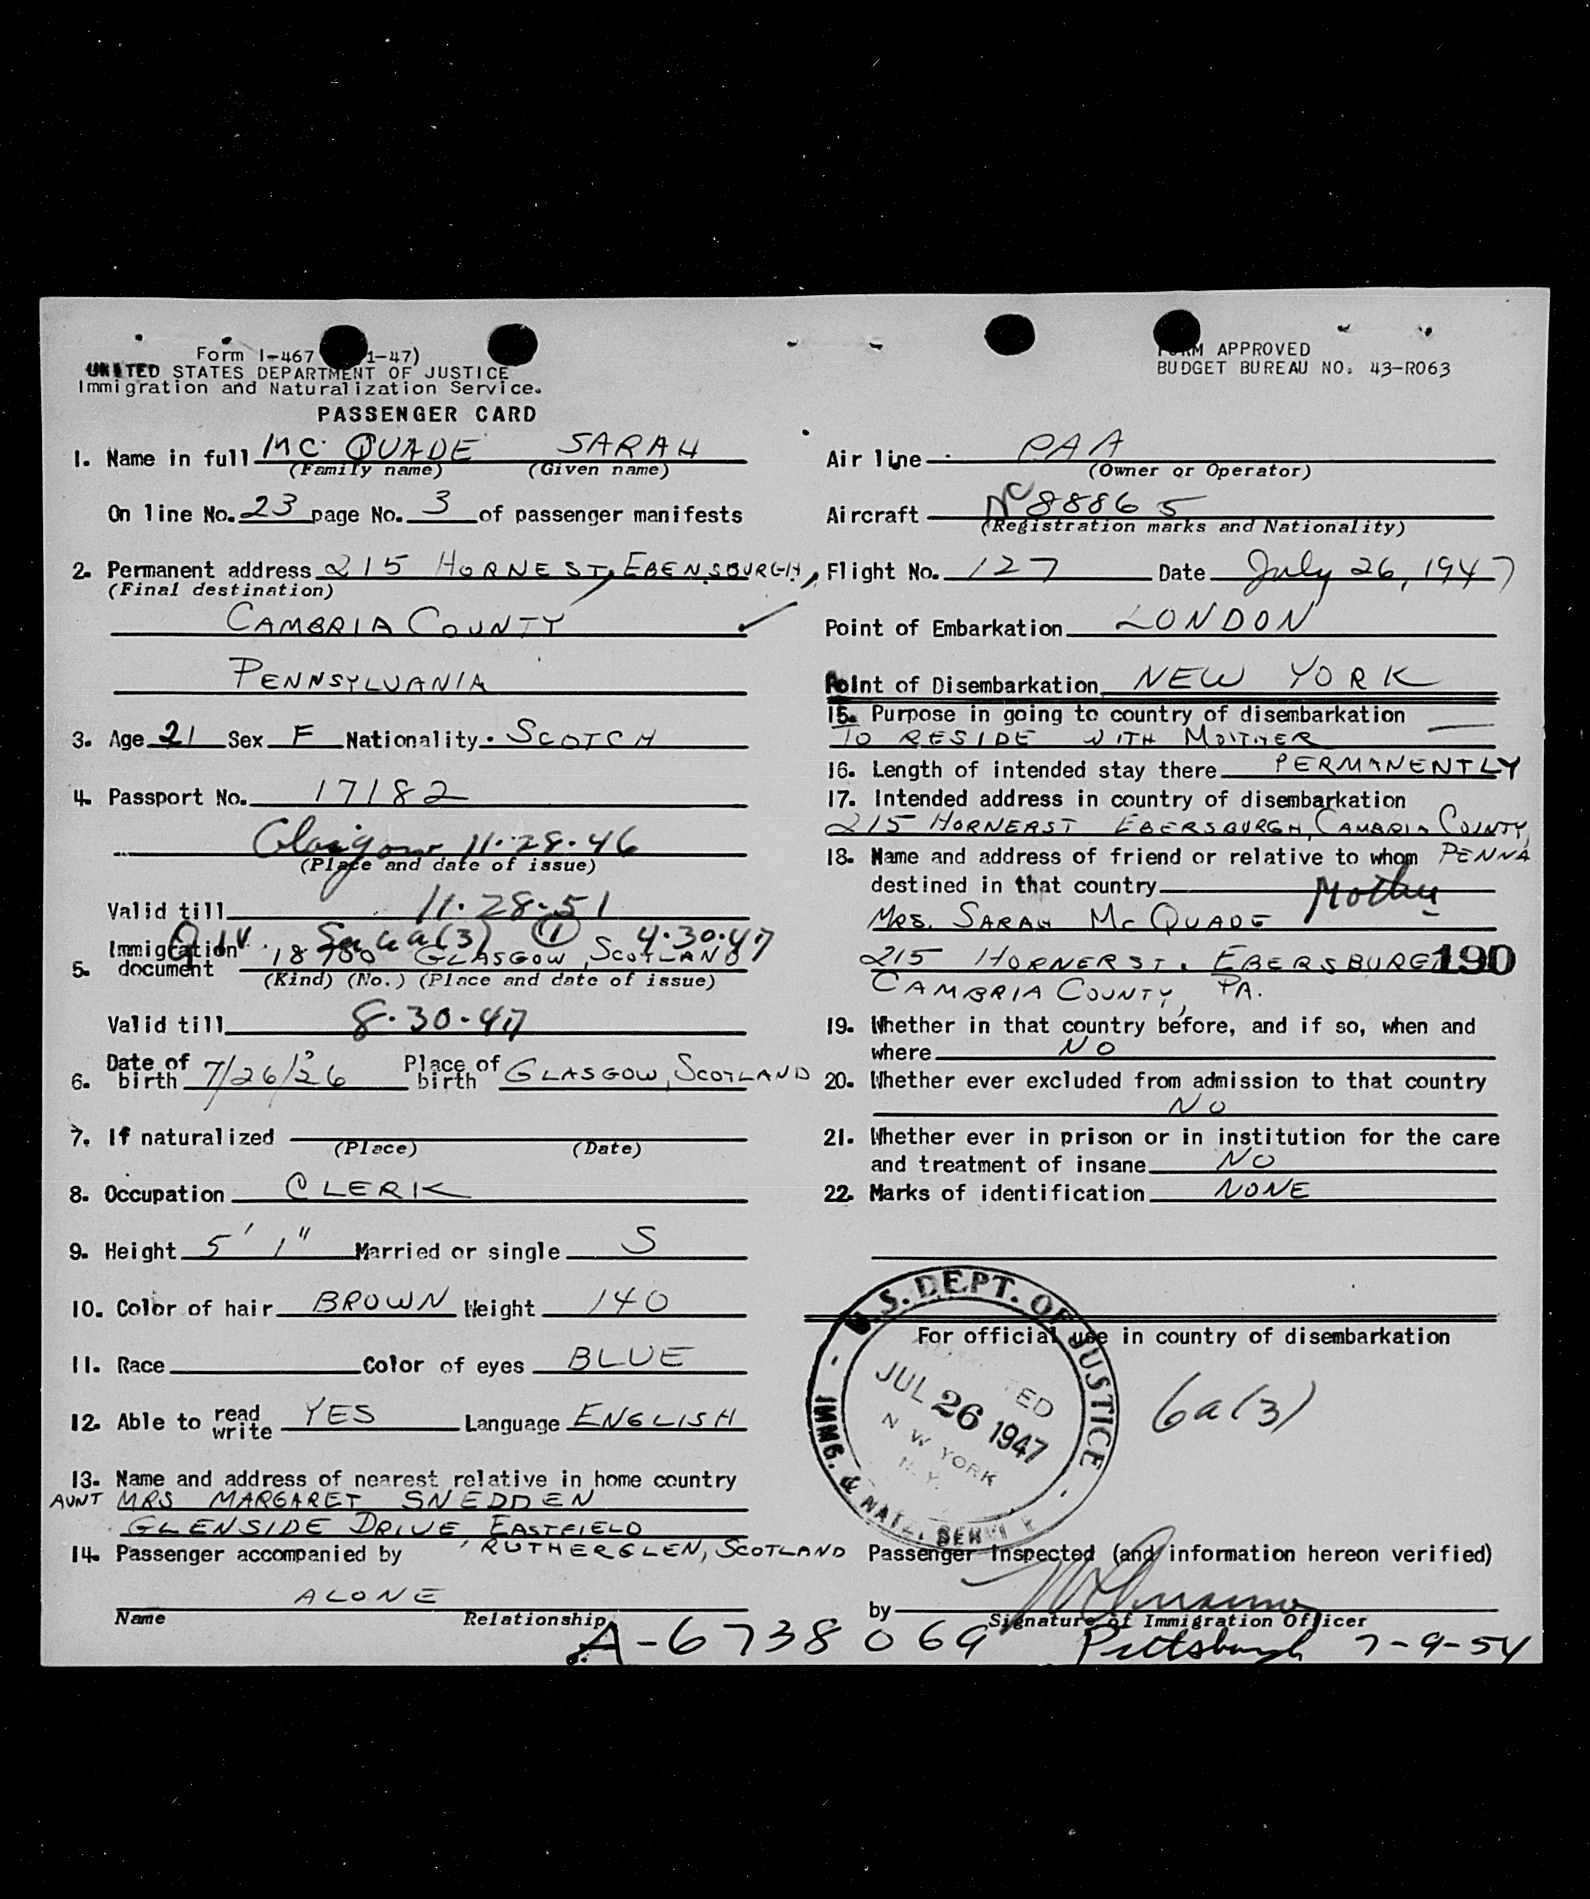 Form I-467 1-47)
UNITED STATES DEPARTMENT OF JUSTICE
Immigration and Naturalization Service.
PASSENGER CARD
FORM APPROVED
BUDGET BUREAU NO. 43-R063
1. Name in full MC QUADE SARAH
(Family name) (Given name)
On line No. 23 page No. 3 of passenger manifests
2. Permanent address 215 HORNE ST, EBENSBURGH,
(Final destination)
CAMBRIA COUNTY
PENNSYLVANIA
3. Age 21 Sex F Nationality SCOTCH
4. Passport No. 17182
Glasgow 11-28-46
(Place and date of issue)
Valid till 11-28-51
Q IV Sec 6a(3) ① 4-30-47
5. Immigration document 18700 GLASGOW, SCOTLAND
(Kind) (No.) (Place and date of issue)
Valid till 8-30-47
6. Date of birth 7/26/26 Place of birth GLASGOW, SCOTLAND
7. If naturalized
(Place) (Date)
8. Occupation CLERK
9. Height 5' 1" Married or single S
10. Color of hair BROWN Weight 140
11. Race Color of eyes BLUE
12. Able to read write YES Language ENGLISH
13. Name and address of nearest relative in home country
AUNT MRS MARGARET SNEDDEN
GLENSIDE DRIVE EASTFIELD
RUTHERGLEN, SCOTLAND
14. Passenger accompanied by
ALONE
Name Relationship
A-6738069
Air line PAA
(Owner or Operator)
Aircraft NC 88865
(Registration marks and Nationality)
Flight No. 127 Date July 26, 1947
Point of Embarkation LONDON
Point of Disembarkation NEW YORK
15. Purpose in going to country of disembarkation
TO RESIDE WITH MOTHER
16. Length of intended stay there PERMANENTLY
17. Intended address in country of disembarkation
215 HORNERST EBERSBURGH, CAMBRIA COUNTY,
PENNA
18. Name and address of friend or relative to whom
destined in that country Mother
MRS. SARAH MC QUADE
215 HORNER ST. EBERSBURG 190
CAMBRIA COUNTY, PA.
19. Whether in that country before, and if so, when and
where NO
20. Whether ever excluded from admission to that country
NO
21. Whether ever in prison or in institution for the care
and treatment of insane NO
22. Marks of identification NONE
For official use in country of disembarkation
U.S. DEPT. OF JUSTICE
JUL 26 1947
N W YORK
N.Y.
IMMG. & NATZ. SERVICE
6a(3)
Passenger Inspected (and information hereon verified)
by
Signature of Immigration Officer
Pittsburgh 7-9-54